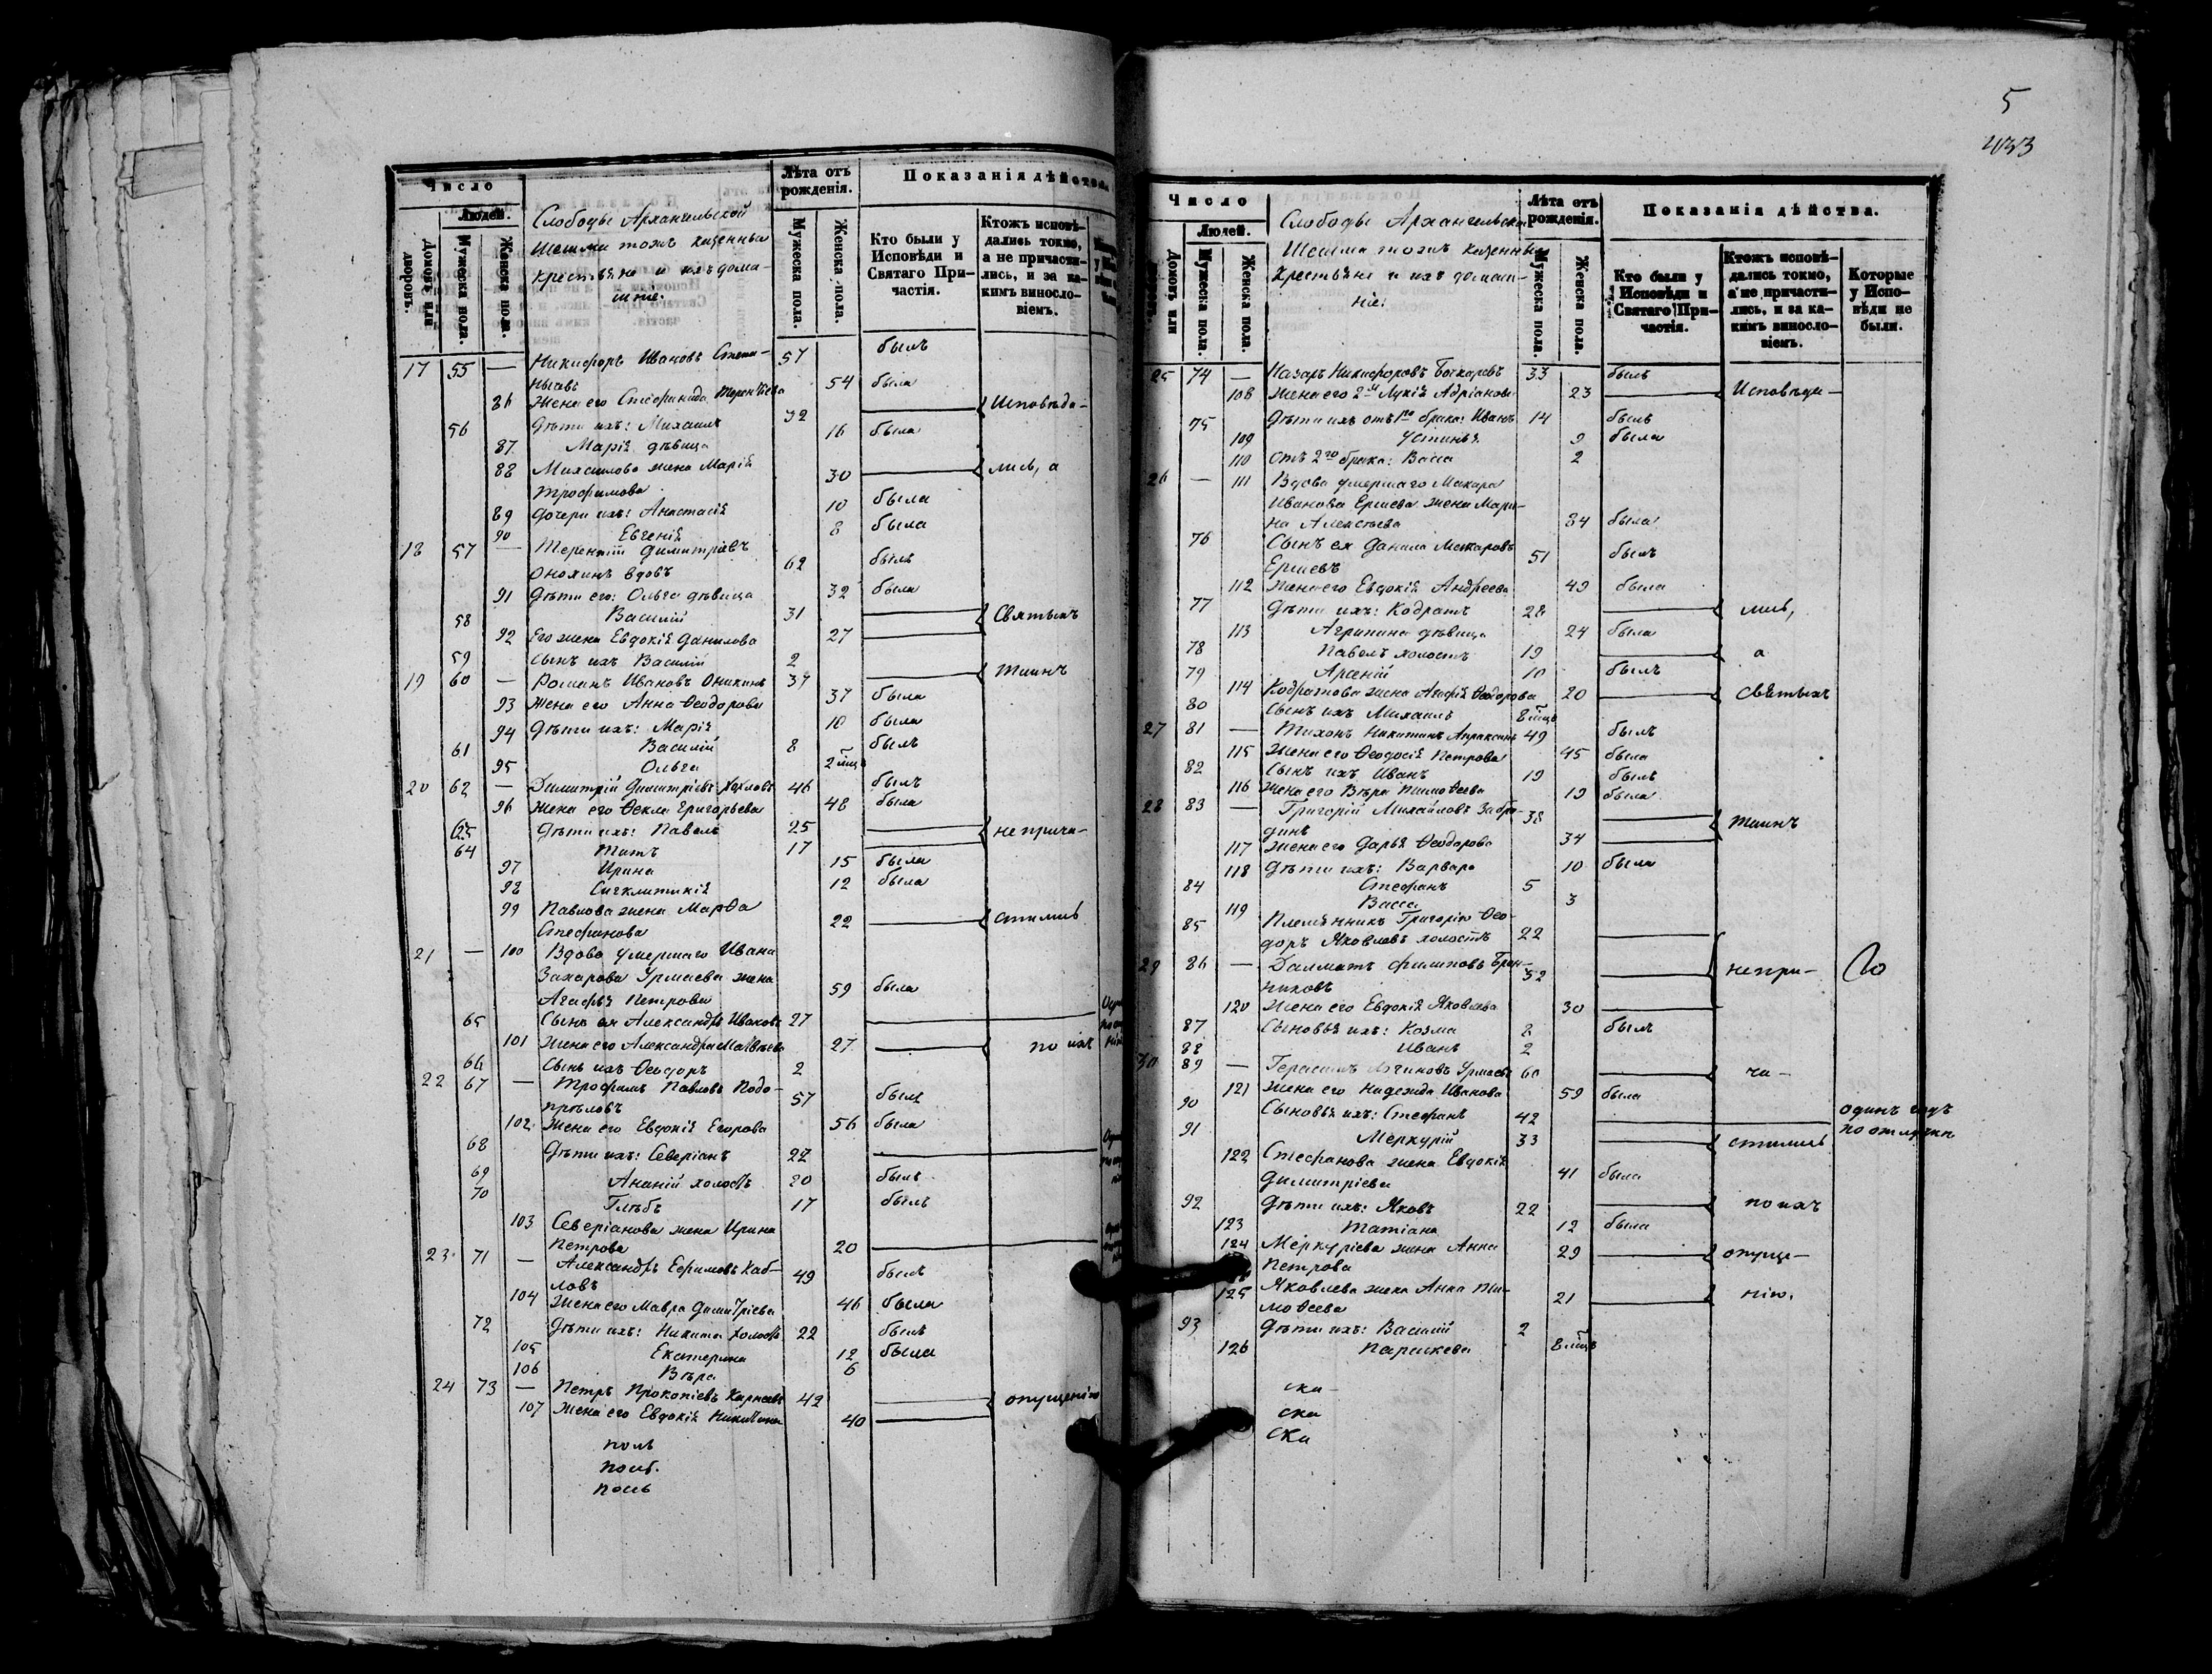 Число
Людей.
Домовъ или дворовъ.
Мужеска пола.
Женска пола.
Слободы Архангельской
Шешми тожъ казенные
крестьяне и ихъ дома-
шніе.
Лѣта отъ рожденія.
Мужеска пола.
Женска пола.
Показанія дѣйства
Кто были у Исповѣди и Святаго При-частія.
Ктожъ исповѣ-дались токмо, а не причасти-лись, и за ка-кимъ винослo-віемъ.
17 55 — Никифоръ Ивановъ Степа- 57 былъ
нычевъ
86 Жена его Стефанида Терентьева 54 была
56 Дѣти ихъ: Михаилъ 32 Исповѣда-
87 Марія дѣвица 16 была
88 Михаилова жена Марія
Трофимова 30 лись, а
89 Дочери ихъ: Анастасія 10 была
90 Евгенія 8 была
18 57 — Терентій Димитріевъ
Онохинъ вдовъ 62 былъ
91 Дѣти его: Ольга дѣвица 32 была
58 Василій 31 Святыхъ
92 Его жена Евдокія Данилова 27
59 Сынъ ихъ Василій 2
19 60 — Романъ Ивановъ Оникинъ 39 Таинъ
93 Жена его Анна Ѳеодорова 37 была
94 Дѣти ихъ: Марія 10 была
61 Василій 8 былъ
95 Ольга 2 мцъ
20 62 — Димитрій Димитріевъ Хохловъ 46 былъ
96 Жена его Ѳекла Григорьева 48 была
63 Дѣти ихъ: Павелъ 25 не прича-
64 Титъ 17
97 Ирина 15 была
98 Сигклитикія 12 была
99 Павлова жена Марѳа
Стефанова 22 стились
21 — 100 Вдова умершаго Ивана
Захарова Урмаева жена
Агафья Петрова 59 была
65 Сынъ ея Александръ Ивановъ 27
101 Жена его Александра Матвѣева 27 по ихъ
66 Сынъ ихъ Ѳеодоръ 2
22 67 — Трофимъ Павловъ Подо-
прѣловъ 57 былъ
102 Жена его Евдокія Егорова 56 была
68 Дѣти ихъ: Северіанъ 22
69 Ананій холостъ 20 былъ
70 Глѣбъ 17 былъ
103 Северіанова жена Ирина
Петрова 20
23 71 — Александръ Ефимовъ Каб-
ловъ 49 былъ
104 Жена его Мавра Димитріева 46 была
72 Дѣти ихъ: Никита холостъ 22 былъ
105 Екатерина 12 была
106 Вѣра 6
24 73 — Петръ Прокопіевъ Карнеевъ 42 опущенію
107 Жена его Евдокія Никитина 40
поль
поль
поль
5
433
Число
Людей.
Домовъ или
Мужеска пола.
Женска пола.
Слободы Архангельской
Шешма тожъ казенные
крестьяне и ихъ домаш-
ніе:
Лѣта отъ рожденія.
Мужеска пола.
Женска пола.
Показанія дѣйства.
Кто были у Исповѣди и Святаго При-частія.
Ктожъ исповѣ-дались токмо, а не причасти-лись, и за ка-кимъ винослo-віемъ.
Которые у Испо-вѣди не были.
25 74 — Назаръ Никифоровъ Бочкаревъ 33 былъ
108 Жена его 2я Лукія Адріанова 23 Исповѣда-
75 Дѣти ихъ отъ 1го брака: Иванъ 14 былъ
109 Устинья 9 была
110 отъ 2го брака: Васса 2
26 — 111 Вдова умершаго Макара
Иванова Ершева жена Мари-
на Алексѣева 84 была
76 Сынъ ея Данила Макаровъ
Ершевъ 51 былъ
112 Жена его Евдокія Андреева 49 была
77 Дѣти ихъ: Кодратъ 28 лись,
113 Агрипина дѣвица 24 была
78 Павелъ холостъ 19 а
79 Арсеній 10 былъ
114 Кодратова жена Агафія Ѳеодорова 20 святыхъ
80 Сынъ ихъ Михаилъ 8 мцъ
27 81 — Тихонъ Никитинъ Апраксинъ 49 былъ
115 Жена его Ѳеодосія Петрова 45 была
82 Сынъ ихъ Иванъ 19 былъ
116 Жена его Вѣра Тимоѳеева 19 была
28 83 — Григорій Михайловъ Забро-
динъ 38 Таинъ
117 Жена его Дарья Ѳеодорова 34
118 Дѣти ихъ: Варвара 10 была
84 Стефанъ 5
119 Васса 3
85 Племянникъ Григорія Ѳео-
доръ Яковлевъ холостъ 22
29 86 — Далматъ Филиповъ Брон-
никовъ 32 непри-
120 Жена его Евдокія Яковлева 30
87 Сыновья ихъ: Козма 8 былъ
88 Иванъ 2
30 89 — Герасимъ Логиновъ Урмаевъ 60 ча-
121 Жена его Надежда Иванова 59 была
90 Сыновья ихъ: Стефанъ 42 одинъ годъ
по отлучкѣ
91 Меркурій 33 стились
122 Стефанова жена Евдокія
Димитріева 41 была
92 Дѣти ихъ: Яковъ 22 по ихъ
123 Татіана 12 была
124 Меркуріева жена Анна
Петрова 29 опуще-
125 Яковлева жена Анна Ти-
моѳеева 21 нію.
93 Дѣти ихъ: Василій 2
126 Параскева 8 мцъ
ска-
ска
ска